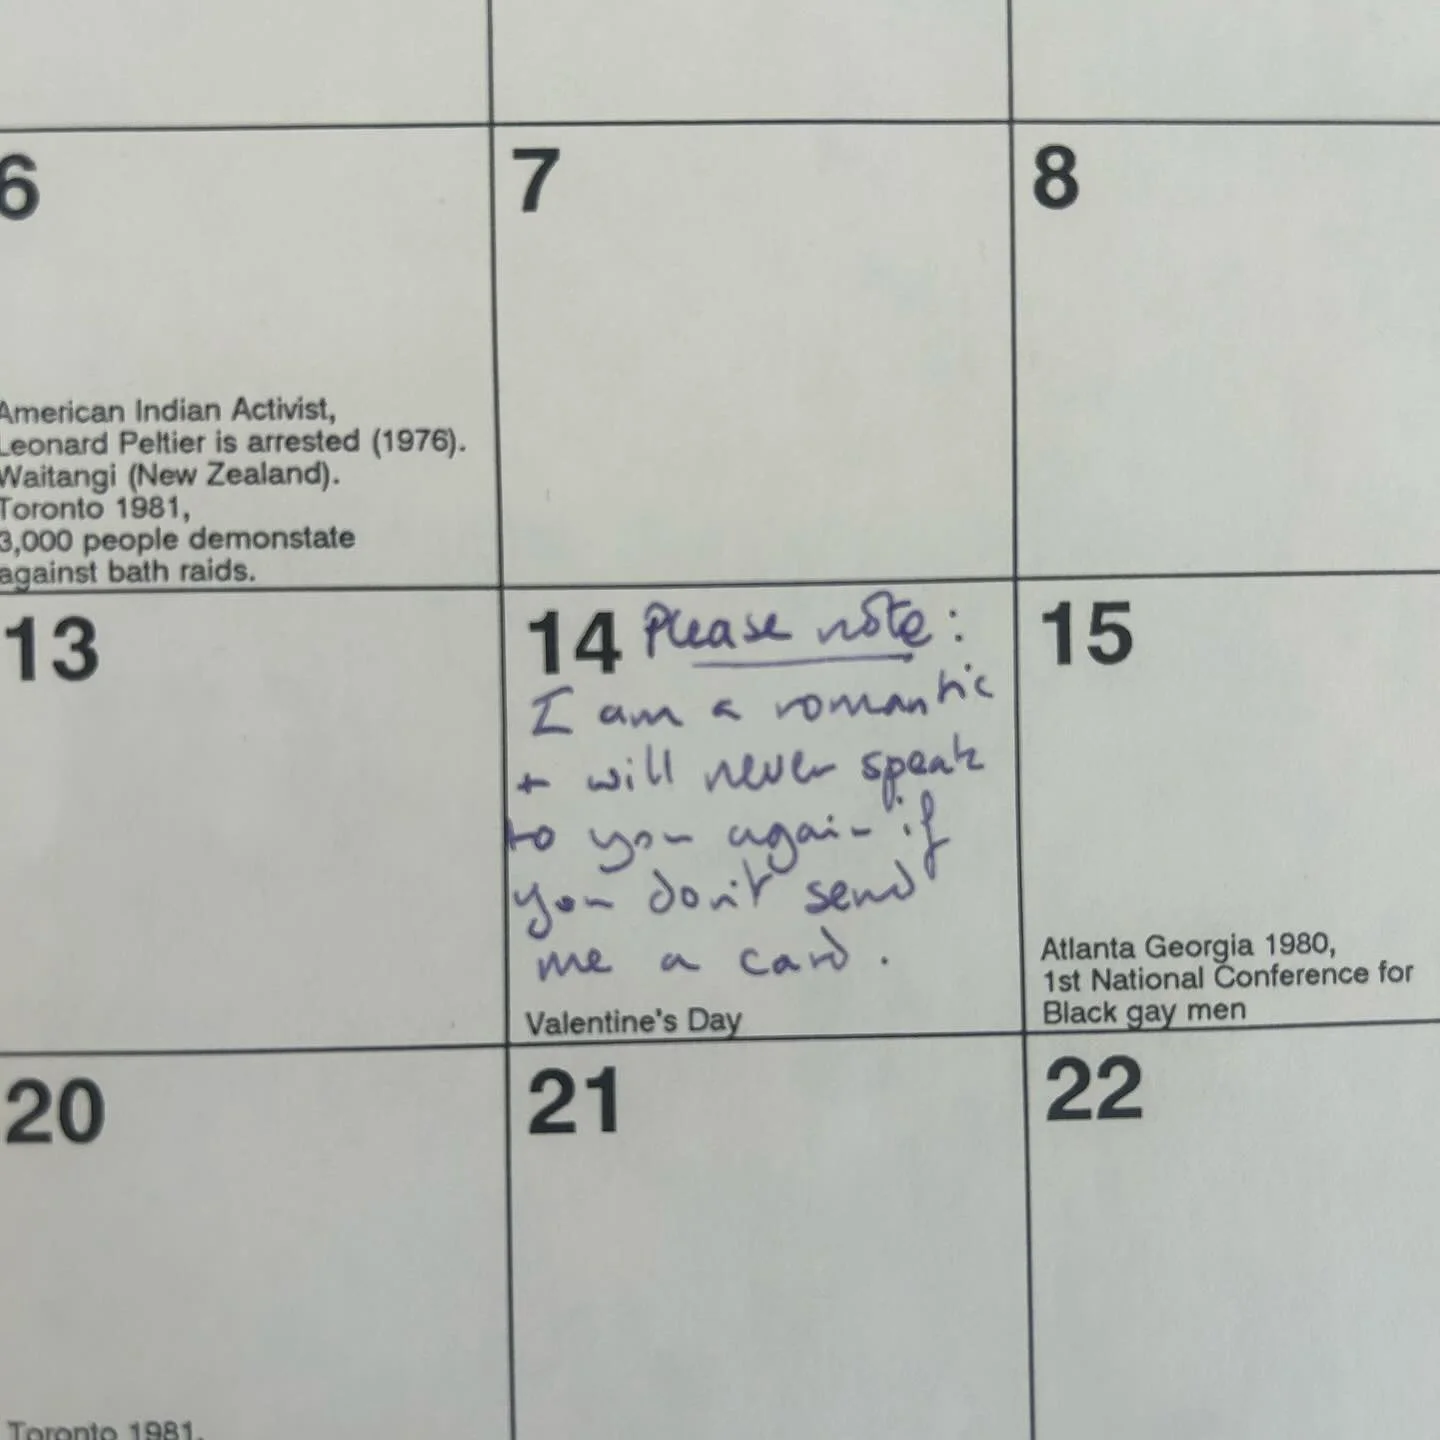 6
7
8
American Indian Activist,
Leonard Peltier is arrested (1976).
Waitangi (New Zealand).
Toronto 1981,
3,000 people demonstate
against bath raids.
13
14 Please note:
I am a romantic
+ will never speak
to you again if
you don't send
me a card.
Valentine's Day
15
Atlanta Georgia 1980,
1st National Conference for
Black gay men
20
21
22
Toronto 1981,